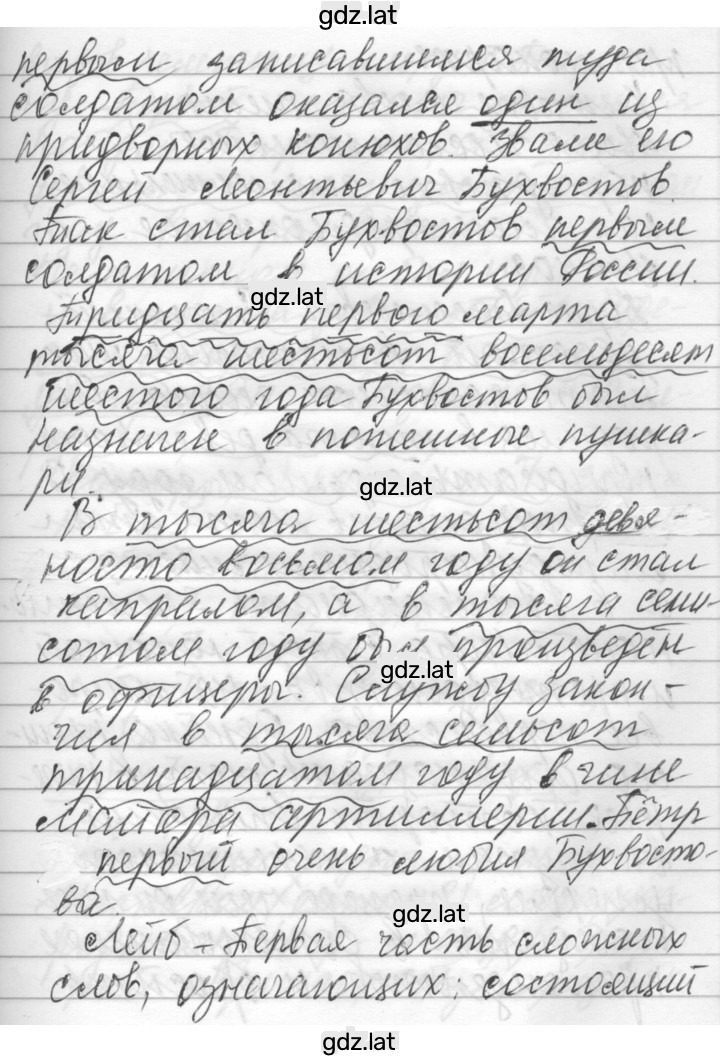 gdz.lat
первым записавшимся туда
солдатом оказался один из
придворных конюхов. Звали его
Сергей Леонтьевич Бухвостов.
Так стал Бухвостов первым
солдатом в истории России.
gdz.lat
Тридцать первого марта
тысяча шестьсот восемьдесят
шестого года Бухвостов был
назначен в потешные пушка-
ри.
gdz.lat
В тысяча шестьсот девя-
носто восьмом году он стал
капралом, а в тысяча семи-
сотом году был произведён
gdz.lat
в офицеры. Службу закон-
чил в тысяча семьсот
тринадцатом году в чине
майора артиллерии. Пётр
первый очень любил Бухвосто-
ва.
gdz.lat
Лейб - Первая часть сложных
слов, означающих: состоящий
gdz.lat